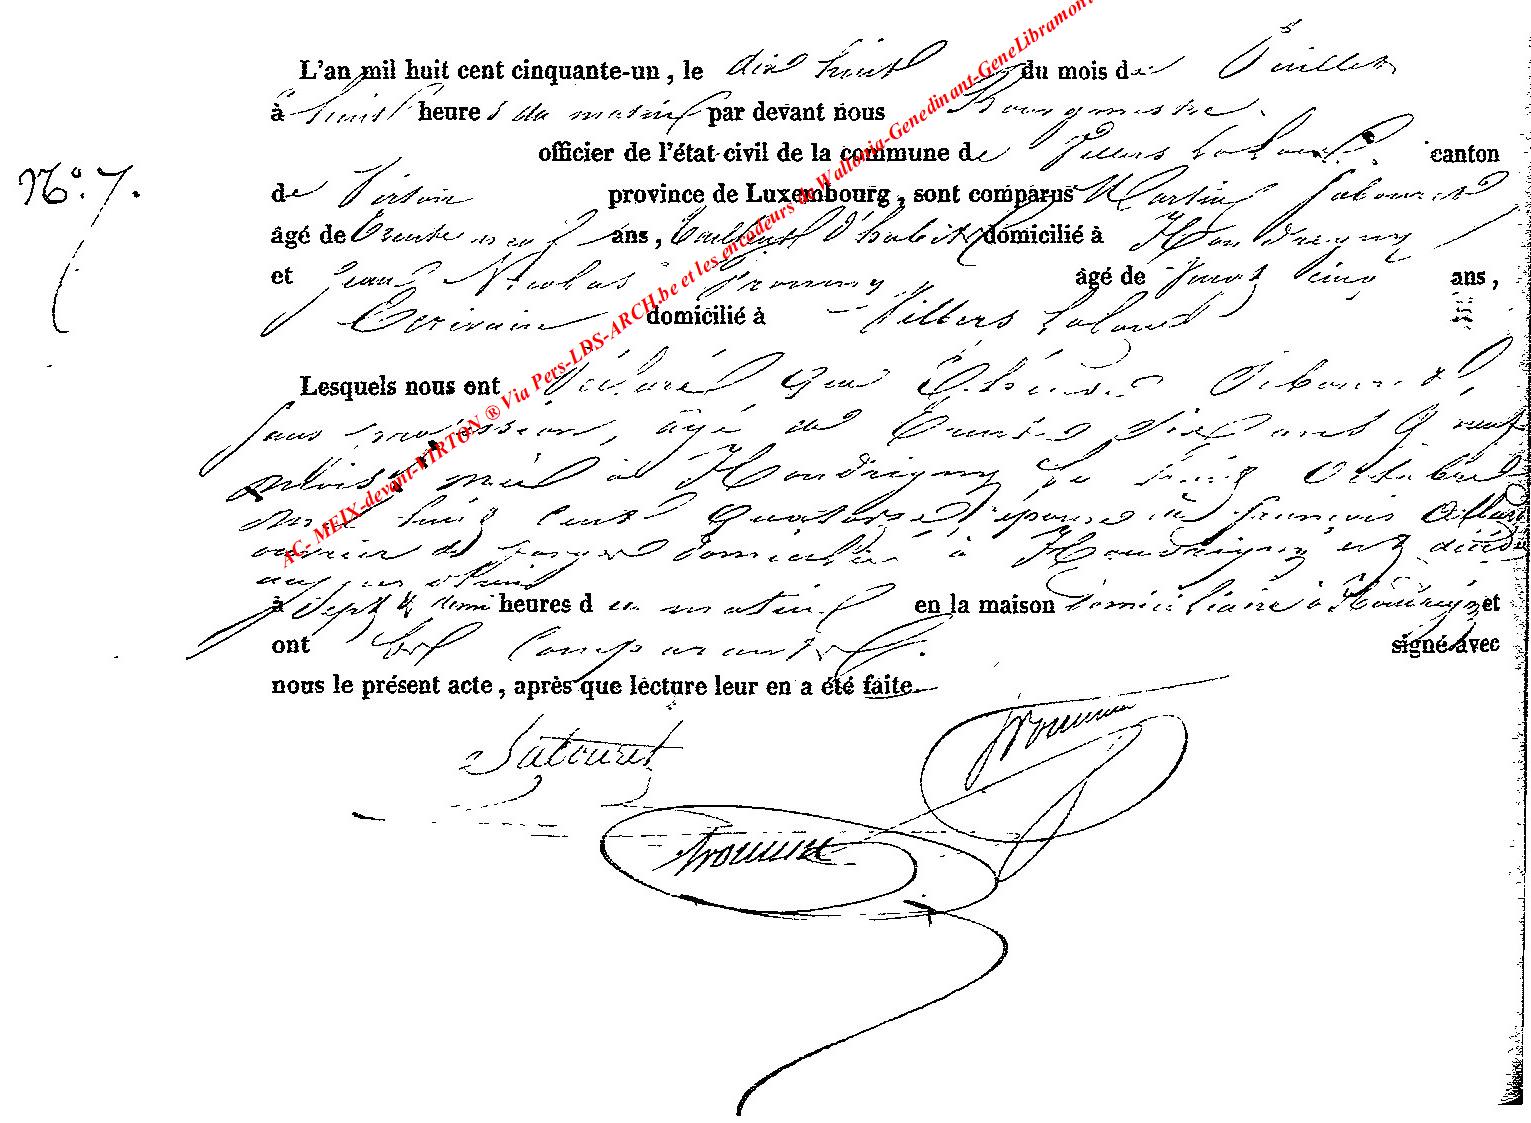 L'an mil huit cent cinquante-un, le dix huit du mois de Juillet
à huit heures du matin par devant nous Bourgmestre
officier de l'état-civil de la commune de Villers la Loue, canton
N°. 7.
de Virton province de Luxembourg, sont comparus Martin
âgé de trente neuf ans, tailleur d'habits domicilié à Houdrigny
et Jean Nicolas âgé de ans,
Ecrivain domicilié à Villers la Loue
Lesquels nous ont déclaré que
sans profession, âgée de trente six ans & neuf
mois, née à Houdrigny le huit Octobre
mil huit cent quatorze, épouse de François
ouvrier de forges domicilié à Houdrigny est décédée
aujourd'hui
à sept & demi heures du matin en la maison domiciliaire à Houdrigny et
ont les comparants signé avec
nous le présent acte, après que lecture leur en a été faite.
AC- MEIX-devant-VIRTON ® Via Pers-LDS-ARCH.be et les encodeurs de Wallonia-Genedinant-GeneLibramont